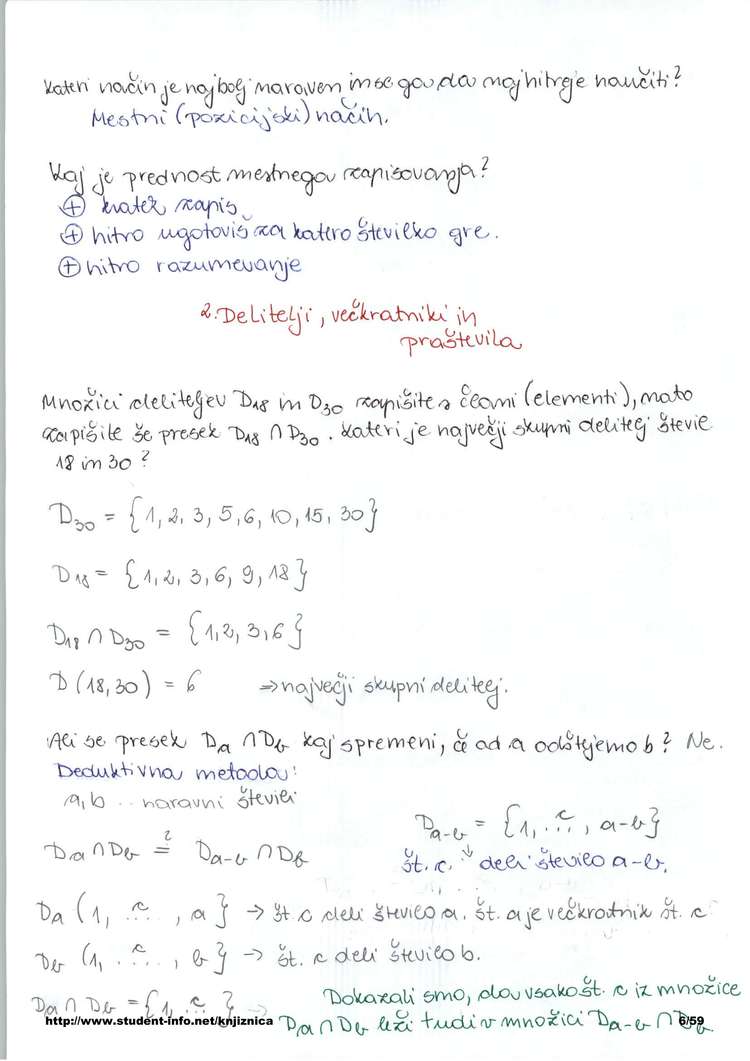 Kateri način je najbolj naraven in se ga da najhitreje naučiti?
Mestni (pozicijski) način.
Kaj je prednost mestnega zapisovanja?
⊕ kratek zapis
⊕ hitro ugotoviš za katero številko gre.
⊕ hitro razumevanje
2. Delitelji, večkratniki in
praštevila
Množici deliteljev D₁₈ in D₃₀ zapišite s členi (elementi), nato
zapišite še presek D₁₈ ∩ D₃₀. Kateri je največji skupni delitelj števil
18 in 30?
D₃₀ = {1, 2, 3, 5, 6, 10, 15, 30}
D₁₈ = {1, 2, 3, 6, 9, 18}
D₁₈ ∩ D₃₀ = {1, 2, 3, 6}
D (18, 30) = 6 ⇒ največji skupni delitelj.
Ali se presek Da ∩ Db kaj spremeni, če od a odštejemo b? Ne.
Deduktivna metoda:
a, b .. naravni števili
Da ∩ Db ≟ Da-b ∩ Db
Da-b = {1, .c., a-b}
št. c deli število a-b.
Da {1, .c., a} → št c deli število a. št. a je večkratnik št. c
Db {1, .c., b} → št. c deli število b.
Da ∩ Db = {1, c } →
Dokazali smo, da vsako št. c iz množice
Da ∩ Db leži tudi v množici Da-b ∩ Db
http://www.student-info.net/knjiznica
6/59